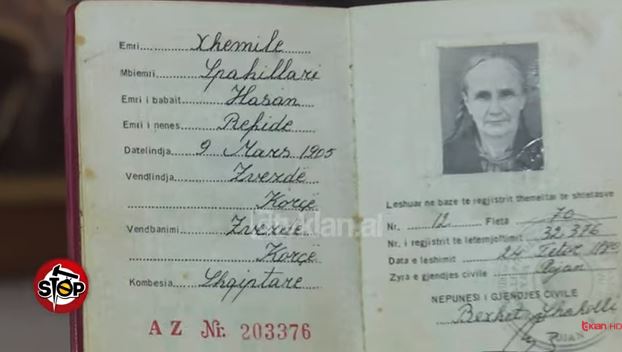 Emri Xhemile
Mbiemri Spahillari
Emri i babait Hasan
Emri i nenes Refide
Datelindja 9 Mars 1905
Vendlindja Zvezdë
Korçë
Vendbanimi Zvezdë
Korçë
Kombesia Shqiptare
AZ Nr. 203376
Leshuar ne baze te regjistrit themeltar te shtetasve
Nr. 12 Fleta 70
Nr. i regjistrit te leternjoftimit 32,376
Data e leshimit 24 Tetor
Zyra e gjendjes civile Pojan
NEPUNESI I GJENDJES CIVILE
Bexhet
POJAN
cityklan.al
STOP
klan HD